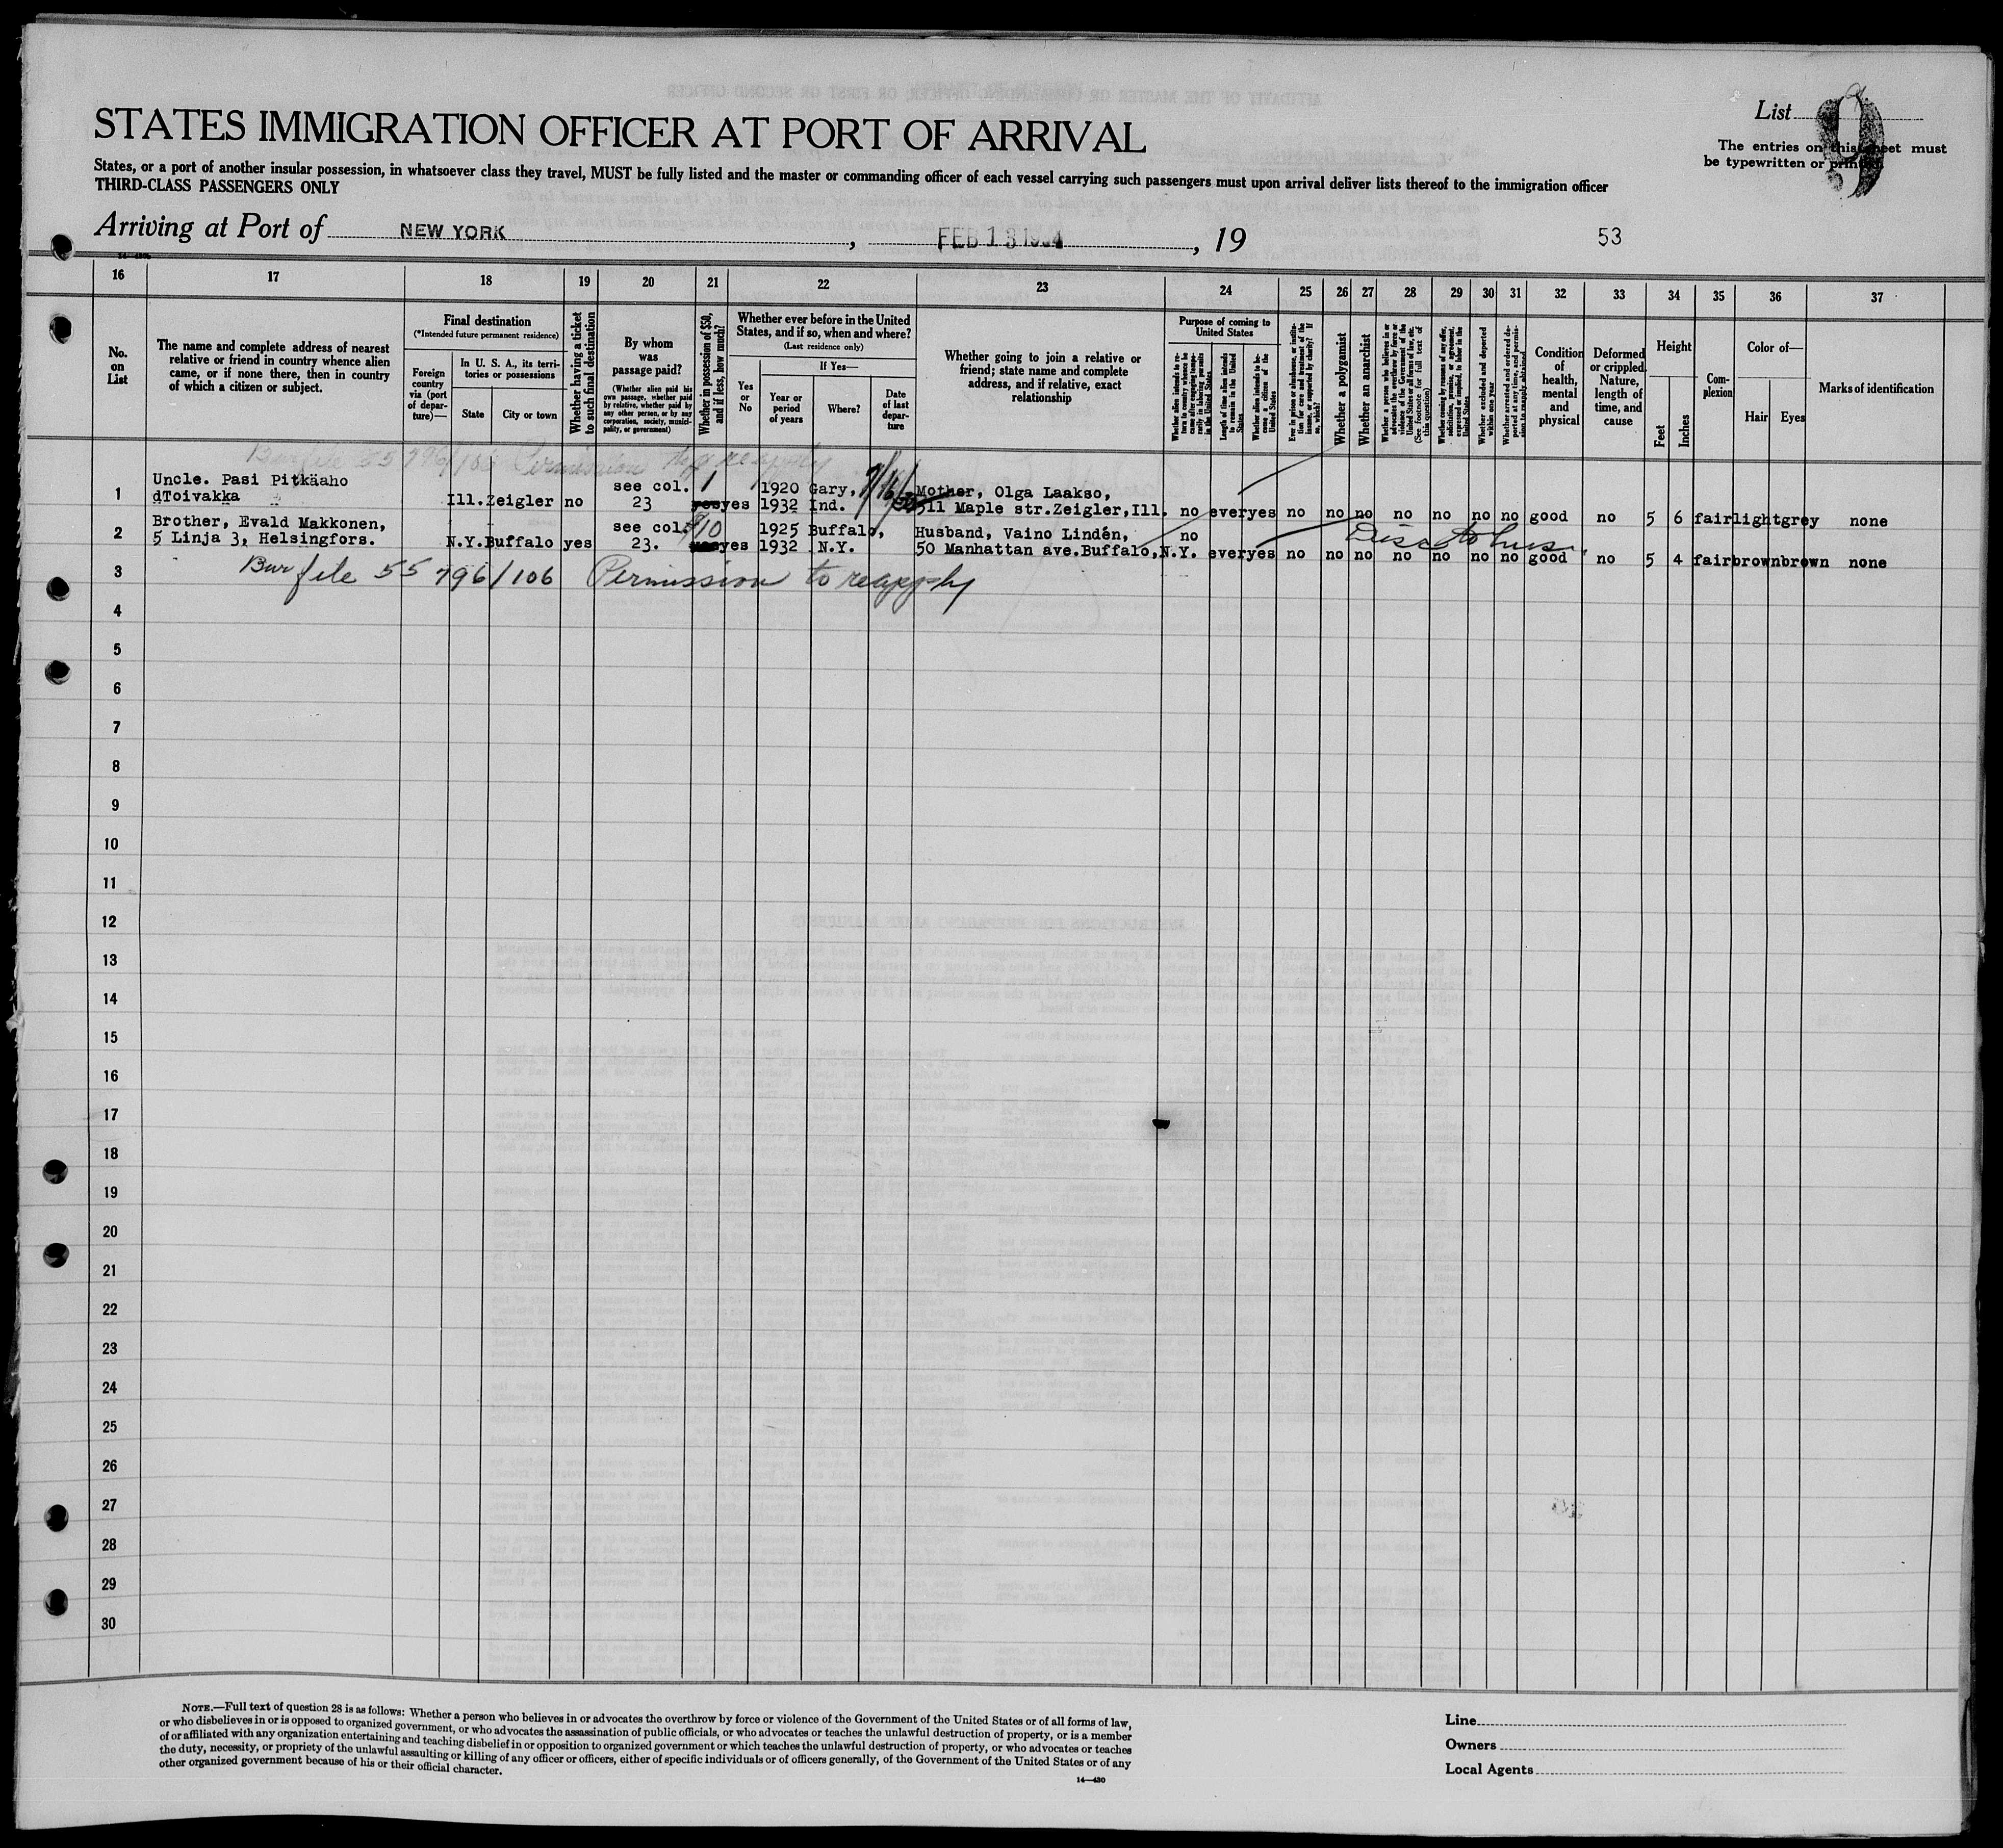 List 9
STATES IMMIGRATION OFFICER AT PORT OF ARRIVAL
The entries on this sheet must
be typewritten or printed
States, or a port of another insular possession, in whatsoever class they travel, MUST be fully listed and the master or commanding officer of each vessel carrying such passengers must upon arrival deliver lists thereof to the immigration officer
THIRD-CLASS PASSENGERS ONLY
Arriving at Port of NEW YORK, FEB 13 1934, 19
53
16 17 18 19 20 21 22 23 24 25 26 27 28 29 30 31 32 33 34 35 36 37
No. on List
The name and complete address of nearest relative or friend in country whence alien came, or if none there, then in country of which a citizen or subject.
Final destination
(*Intended future permanent residence)
Foreign country via (port of departure)—
In U. S. A., its territories or possessions
State
City or town
Whether having a ticket to such final destination
By whom was passage paid?
(Whether alien paid his own passage, whether paid by relative, whether paid by any other person, or by any corporation, society, municipality, or government)
Whether in possession of $50, and if less, how much?
Whether ever before in the United States, and if so, when and where?
(Last residence only)
Yes or No
If Yes—
Year or period of years
Where?
Date of last departure
Whether going to join a relative or friend; state name and complete address, and if relative, exact relationship
Purpose of coming to United States
Whether alien intends to return to country whence he came after engaging temporarily in laboring pursuits in the United States
Length of time alien intends to remain in the United States
Whether alien intends to become a citizen of the United States
Ever in prison or almshouse, or institution for care and treatment of the insane, or supported by charity? If so, which?
Whether a polygamist
Whether an anarchist
Whether a person who believes in or advocates the overthrow by force or violence of the Government of the United States or all forms of law, etc. (See footnote for full text of this question)
Whether coming by reason of any offer, solicitation, promise, or agreement, expressed or implied, to labor in the United States
Whether excluded and deported within one year
Whether arrested and ordered deported at any time, and permission to reapply obtained
Condition of health, mental and physical
Deformed or crippled. Nature, length of time, and cause
Height
Feet
Inches
Complexion
Color of—
Hair
Eyes
Marks of identification
Bur file 55 796/106 Permission to reapply
1 Uncle. Pasi Pitkäaho see col. 1 1920 Gary, Mother, Olga Laakso,
dToivakka Ill. Zeigler no 23 yes 1932 Ind. 511 Maple str. Zeigler, Ill. no ever yes no no no no no no no good no 5 6 fair light grey none
2 Brother, Evald Makkonen, see col. $10 1925 Buffalo, Husband, Vaino Lindén, no
5 Linja 3, Helsingfors. N.Y. Buffalo yes 23. yes 1932 N.Y. 50 Manhattan ave. Buffalo, N.Y. ever yes no no no no no no no good no 5 4 fair brown brown none
Disc to hus
3 Bur file 55 796/106 Permission to reapply
4
5
6
7
8
9
10
11
12
13
14
15
16
17
18
19
20
21
22
23
24
25
26
27
28
29
30
NOTE.—Full text of question 28 is as follows: Whether a person who believes in or advocates the overthrow by force or violence of the Government of the United States or of all forms of law,
or who disbelieves in or is opposed to organized government, or who advocates the assassination of public officials, or who advocates or teaches the unlawful destruction of property, or is a member
of or affiliated with any organization entertaining and teaching disbelief in or opposition to organized government or which teaches the unlawful destruction of property, or who advocates or teaches
the duty, necessity, or propriety of the unlawful assaulting or killing of any officer or officers, either of specific individuals or of officers generally, of the Government of the United States or of any
other organized government because of his or their official character.
14—430
Line
Owners
Local Agents